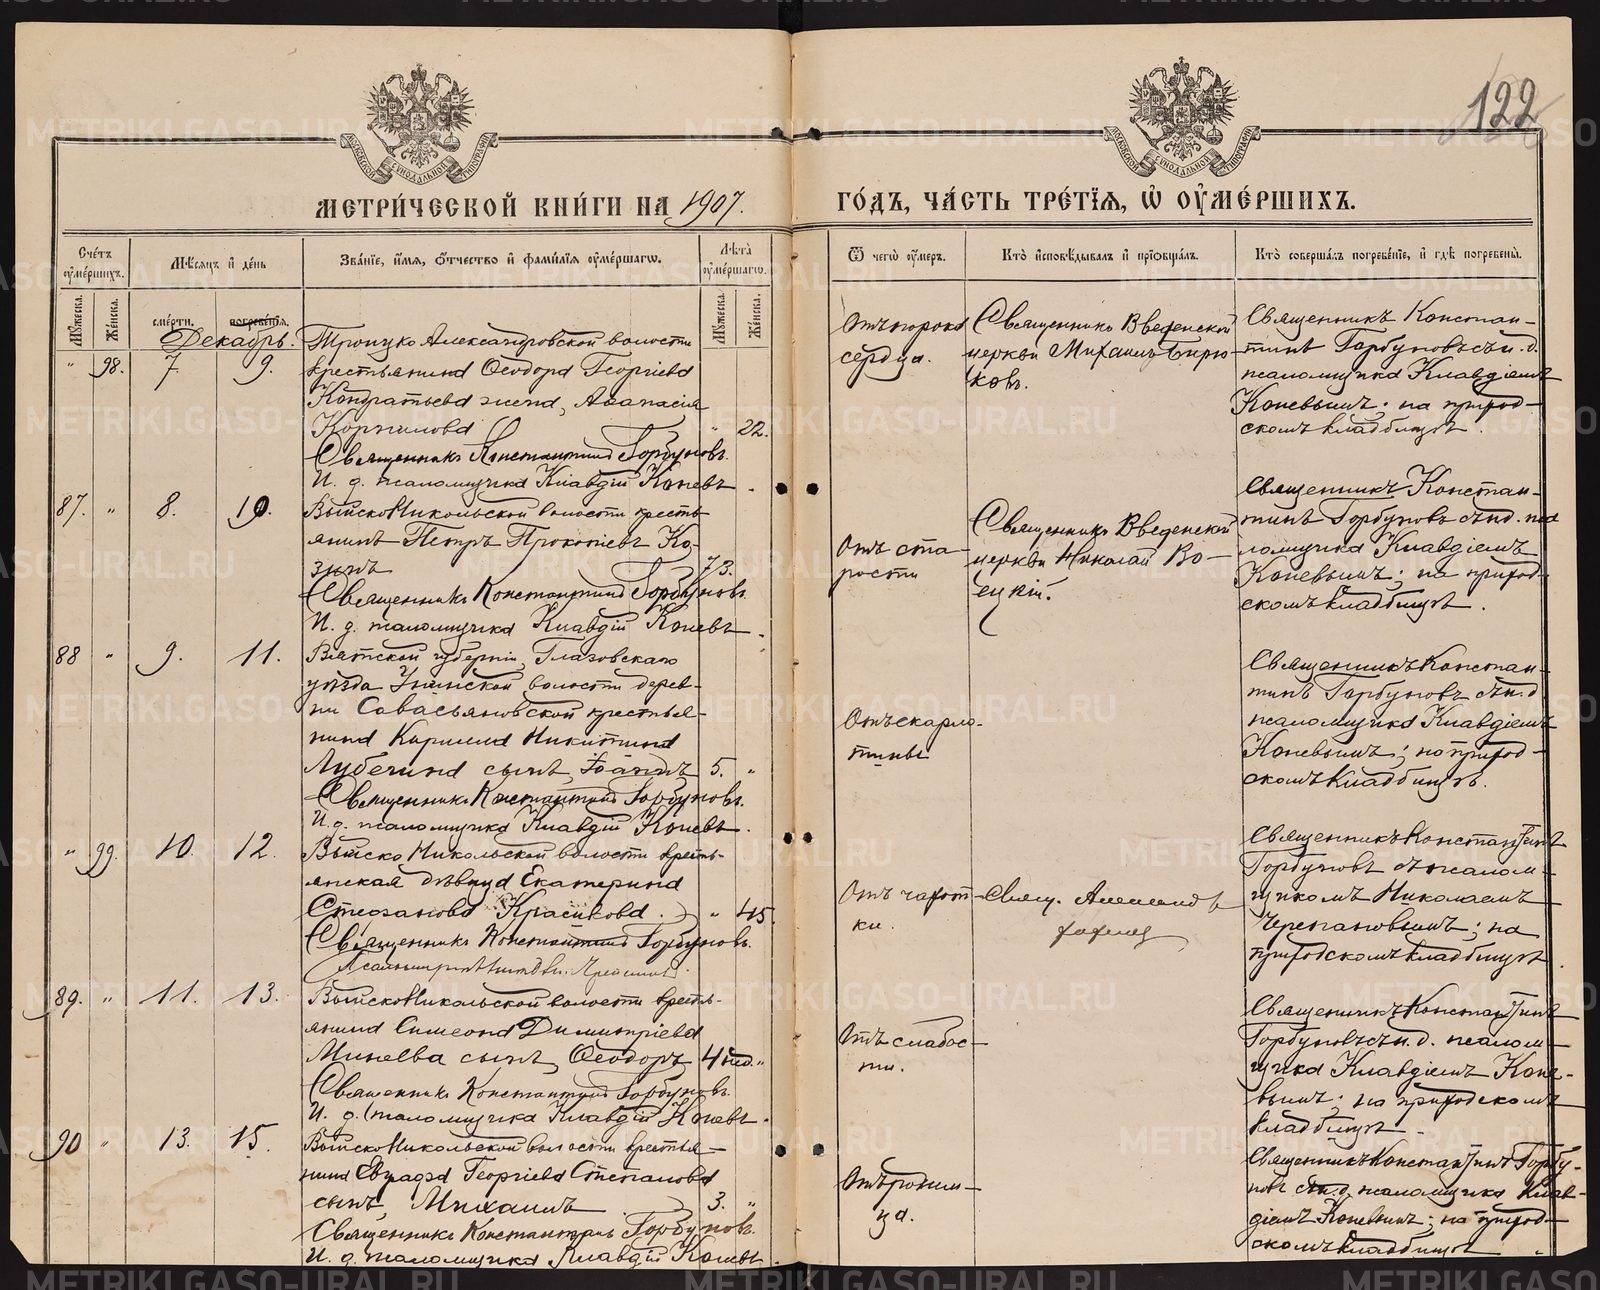 122
МЕТРИ́ЧЕСКОЙ КНИ́ГИ НА 1907.
ГО́ДЪ, ЧА́СТЬ ТРЕ́ТЇѦ, Ѡ҆ ОУ҆МЕ́РШИХЪ.
Сче́тъ оу҆ме́ршихъ.
Мѣ́сяцъ и҆ де́нь
Зва́нїе, и҆́мѧ, ѻ҆́тчество и҆ фами́лїѧ оу҆ме́ршагѡ.
Лѣ́та̀ оу҆ме́ршагѡ.
Ѿ чегѡ̀ оу҆́меръ.
Кто̀ и҆сповѣ́дывалъ и҆ прїѡбща́лъ.
Кто̀ соверша́лъ погребе́нїе, и҆ гдѣ̀ погребены̀.
Мꙋ́жеска.
Же́нска.
сме́рти.
погребе́нїѧ.
Мꙋ́жеска.
Же́нска.
Декабрь.
" 98. 7. 9.
Троицко Александровской волости
крестьянина Ѳеодора Георгіева
Кондратьева жена, Аѳанасія
Корнилова " 22.
Священникъ Константинъ Горбуновъ.
И. д. псаломщика Клавдій Коневъ.
Отъ порока
сердца.
Священникъ Введенской
церкви Михаилъ Бирю-
ковъ.
Священникъ Констан-
тинъ Горбуновъ съ и. д.
псаломщика Клавдіемъ
Коневымъ; на приход-
скомъ кладбищѣ.
87. " 8. 10.
Выйско Никольской волости кресть-
янинъ Петръ Прокопіевъ Ко-
зинъ 73.
Священникъ Константинъ Горбуновъ.
И. д. псаломщика Клавдій Коневъ.
Отъ ста-
рости
Священникъ Введенской
церкви Николай Во-
ецкій.
Священникъ Констан-
тинъ Горбуновъ съ и.д. пса
ломщика Клавдіемъ
Коневымъ; на приход-
скомъ кладбищѣ.
88 " 9. 11.
Вятской губерніи, Глазовскаго
уѣзда Унинской волости дерев-
ни Савасьяновской крестья-
нина Кирилла Никитина
Лубенина сынъ, Іоаннъ 5. "
Священникъ Константинъ Горбуновъ.
И. д. псаломщика Клавдій Коневъ.
Отъ скарла-
тины
Священникъ Констан-
тинъ Горбуновъ съ и. д
псаломщика Клавдіемъ
Коневымъ; на приход-
скомъ кладбищѣ.
" 99. 10. 12.
Выйско Никольской волости кресть-
янская дѣвица Екатерина
Стефанова Красикова. " 45
Священникъ Константинъ Горбуновъ.
Отъ чахот-
ки.
Свящ.
Священникъ Константинъ
Горбуновъ съ псалом-
щикомъ Николаемъ
Черепановымъ; на
приходскомъ кладбищѣ.
89. " 11. 13.
Выйско Никольской волости кресть-
янина Симеона Димитріева
Минеева сынъ, Ѳеодоръ 4 нед. "
Священникъ Константинъ Горбуновъ.
И. д. псаломщика Клавдій Коневъ.
Отъ слабос-
ти.
Священникъ Константинъ
Горбуновъ съ и. д. псалом-
щика Клавдіемъ Коне-
вымъ; на приходскомъ
кладбищѣ.
90 " 13. 15.
Выйско Никольской волости крестья-
нина Евграфа Георгіева Степанова
сынъ, Михаилъ 3. "
Священникъ Константинъ Горбуновъ.
И. д. псаломщика Клавдій Коневъ.
Отъ родим-
ца.
Священникъ Константинъ Горбу-
новъ съ и.д. псаломщика Клав-
діемъ Коневымъ; на приход-
скомъ кладбищѣ.
METRIKI.GASO-URAL.RU